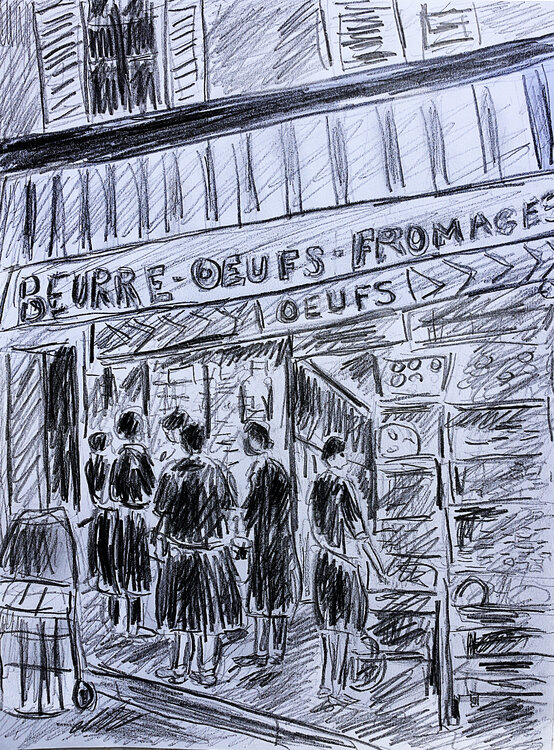 BEURRE - OEUFS - FROMAGES
OEUFS